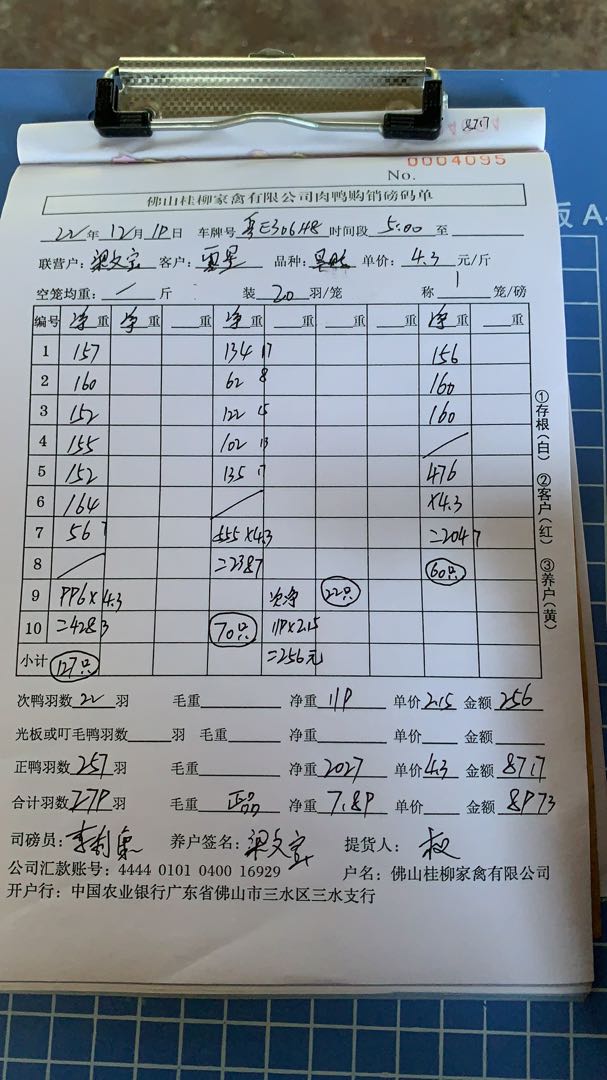 8717
0004095
No.
佛山桂柳家禽有限公司肉鸭购销磅码单
22年12月19日 车牌号粤E306H8时间段5:00至
联营户:梁文宝 客户: 品种: 单价:4.3元/斤
空笼均重:/斤 装20羽/笼 称1笼/磅
编号 净重 净重 重 净重 重 重 净重 重
1 157 134 17 156
2 160 62 8 160
3 152 122 15 160
4 155 102 13 /
5 152 135 17 476
6 164 / ×4.3
7 56 7 555×4.3 =2047
8 / =2387 60只
9 996×4.3 次净 22只
10 =4283 70只 119×2.15
小计 127只 =256元
次鸭羽数22羽 毛重 净重119 单价2.15 金额256
光板或叮毛鸭羽数 羽 毛重 净重 单价 金额
正鸭羽数257羽 毛重 净重2027 单价4.3 金额8717
合计羽数279羽 毛重正品 净重7.89 单价 金额8973
司磅员: 养户签名:梁文宝 提货人:
公司汇款账号:4444 0101 0400 16929 户名:佛山桂柳家禽有限公司
开户行:中国农业银行广东省佛山市三水区三水支行
①存根(白) ②客户(红) ③养户(黄)
板 A4